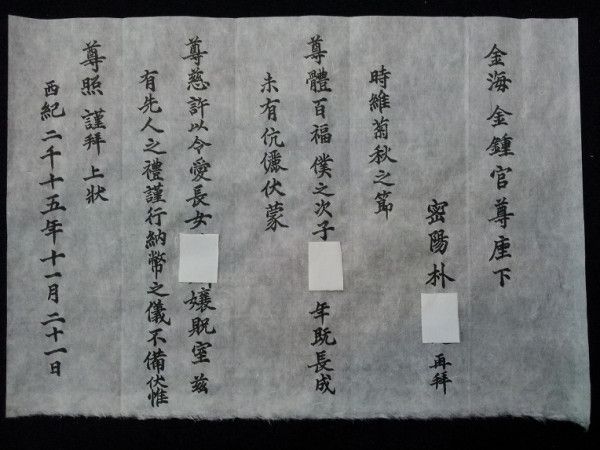 金海 金鍾官尊座下
密陽朴 再拜
時維菊秋之節
尊體百福 僕之次子 年既長成
未有伉儷伏蒙
尊慈許以令愛長女 孃貺室 玆
有先人之禮謹行納幣之儀不備伏惟
尊照 謹拜 上狀
西紀 二千十五年 十一月 二十一日